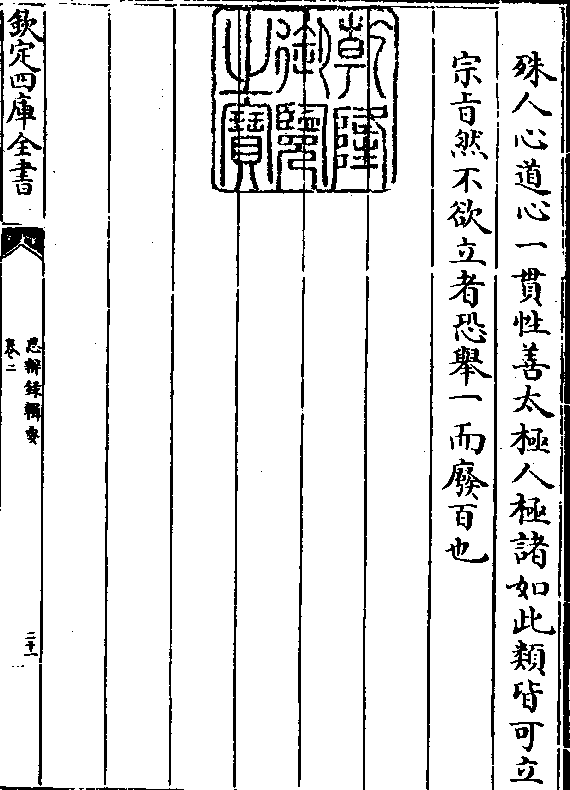 殊人心道心一貫性善太極人極諸如此類皆可立
宗㫖然不欲立者恐舉一而廢百也
乾隆
御覽
之寶
欽定四庫全書
思辨錄輯要
卷二
二十一